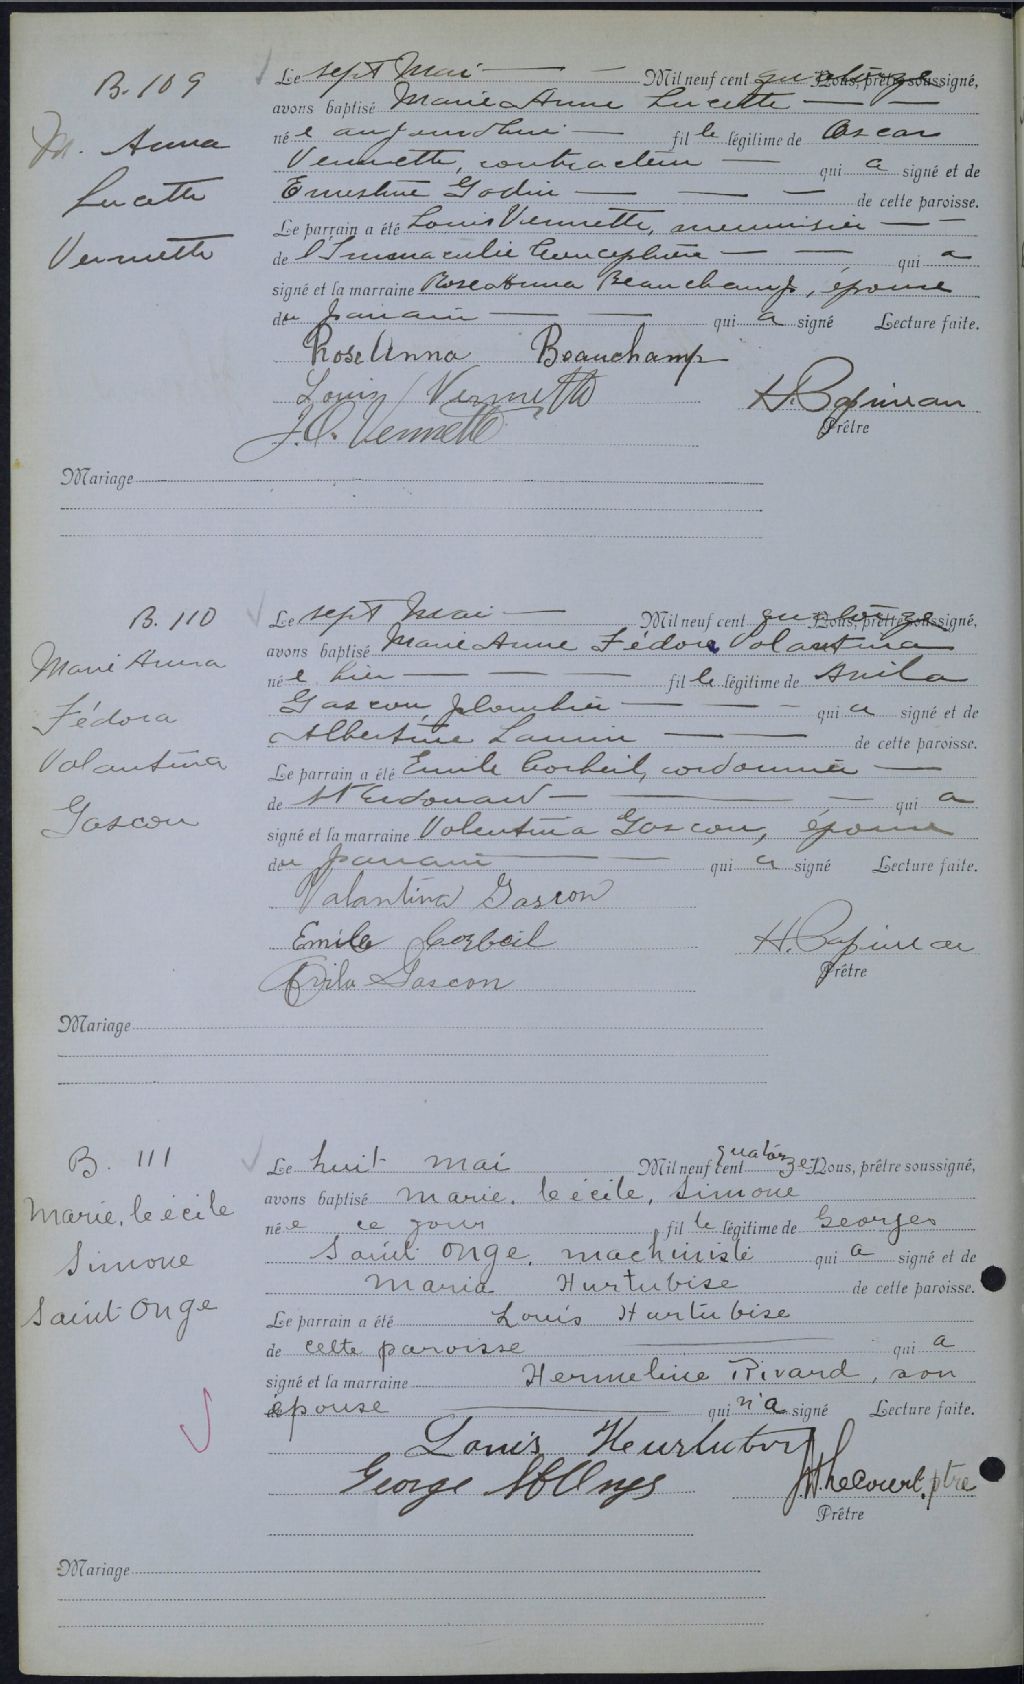 B. 109
M. Anna
Lucette
Vermette
Le sept Mai — — Mil neuf cent quatorze Nous, prêtre soussigné,
avons baptisé Marie Anne Lucette — —
né e aujourd'hui — fil le légitime de Oscar
Vermette, contracteur — qui a signé et de
Ernestine Godin — — — de cette paroisse.
Le parrain a été Louis Vermette, menuisier — —
de l'Immaculée Conception — — qui a
signé et la marraine Rose Anna Beauchamp, épouse
du parrain — — qui a signé Lecture faite.
Rose Anna Beauchamp
Louis Vermette
J. O. Vermette
H. Papineau
Prêtre
Mariage
B. 110
Marie Anna
Fédora
Valantina
Gascon
Le sept Mai — Mil neuf cent quatorze Nous, prêtre soussigné,
avons baptisé Marie Anne Fédora Valantina
né e hier — — — fil le légitime de Avila
Gascon, plombier — — — qui a signé et de
Albertine Laurin — — de cette paroisse.
Le parrain a été Emile Corbeil, cordonnier —
de St Edouard — — — qui a
signé et la marraine Valentina Gascon, épouse
du parrain — — qui a signé Lecture faite.
Valantina Gascon
Emile Corbeil
Avila Gascon
H. Papineau
Prêtre
Mariage
B. 111
Marie, Cécile
Simone
Saint-Onge
Le huit mai Mil neuf cent quatorze Nous, prêtre soussigné,
avons baptisé Marie, Cécile, Simone
né e ce jour fil le légitime de Georges
Saint Onge, machiniste qui a signé et de
Maria Hurtubise de cette paroisse.
Le parrain a été Louis Hurtubise
de cette paroisse — qui a
signé et la marraine Hermeline Rivard, son
épouse — qui n'a signé Lecture faite.
Louis Heurtubise
George St Onge
J. H. Lecourt, ptre
Prêtre
Mariage